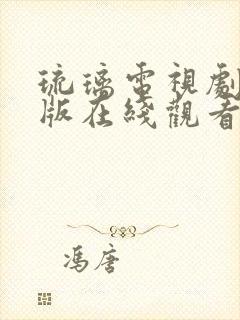 琉璃電視劇
版在綫觀看
馮唐